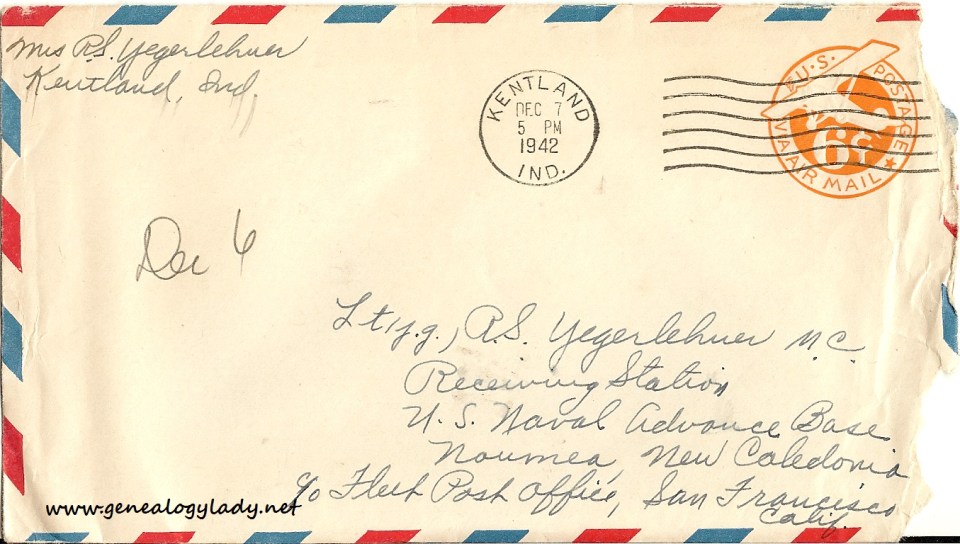 Mrs R.S. Yegerlehner
Kentland, Ind.
KENTLAND
DEC 7
5 PM
1942
IND.
U.S. POSTAGE
6¢
VIA AIR MAIL
Dec 6
Lt(j.g.) R.S. Yegerlehner M.C.
Receiving Station
U.S. Naval Advance Base
Noumea, New Caledonia
c/o Fleet Post Office, San Francisco
Calif.
www.genealogylady.net